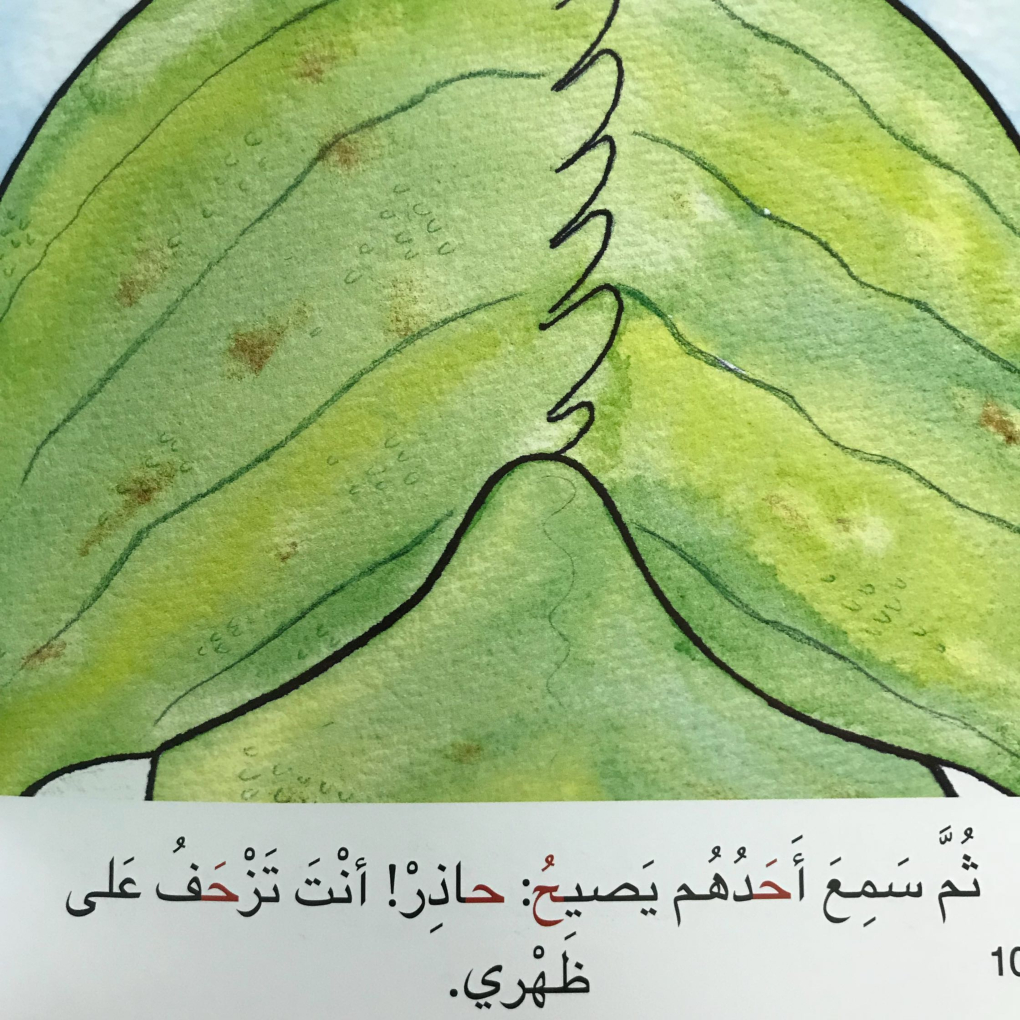 ثُمَّ سَمِعَ أَحَدُهُم يَصيحُ: حاذِرْ! أنْتَ تَزْحَفُ عَلى
ظَهْري.
10